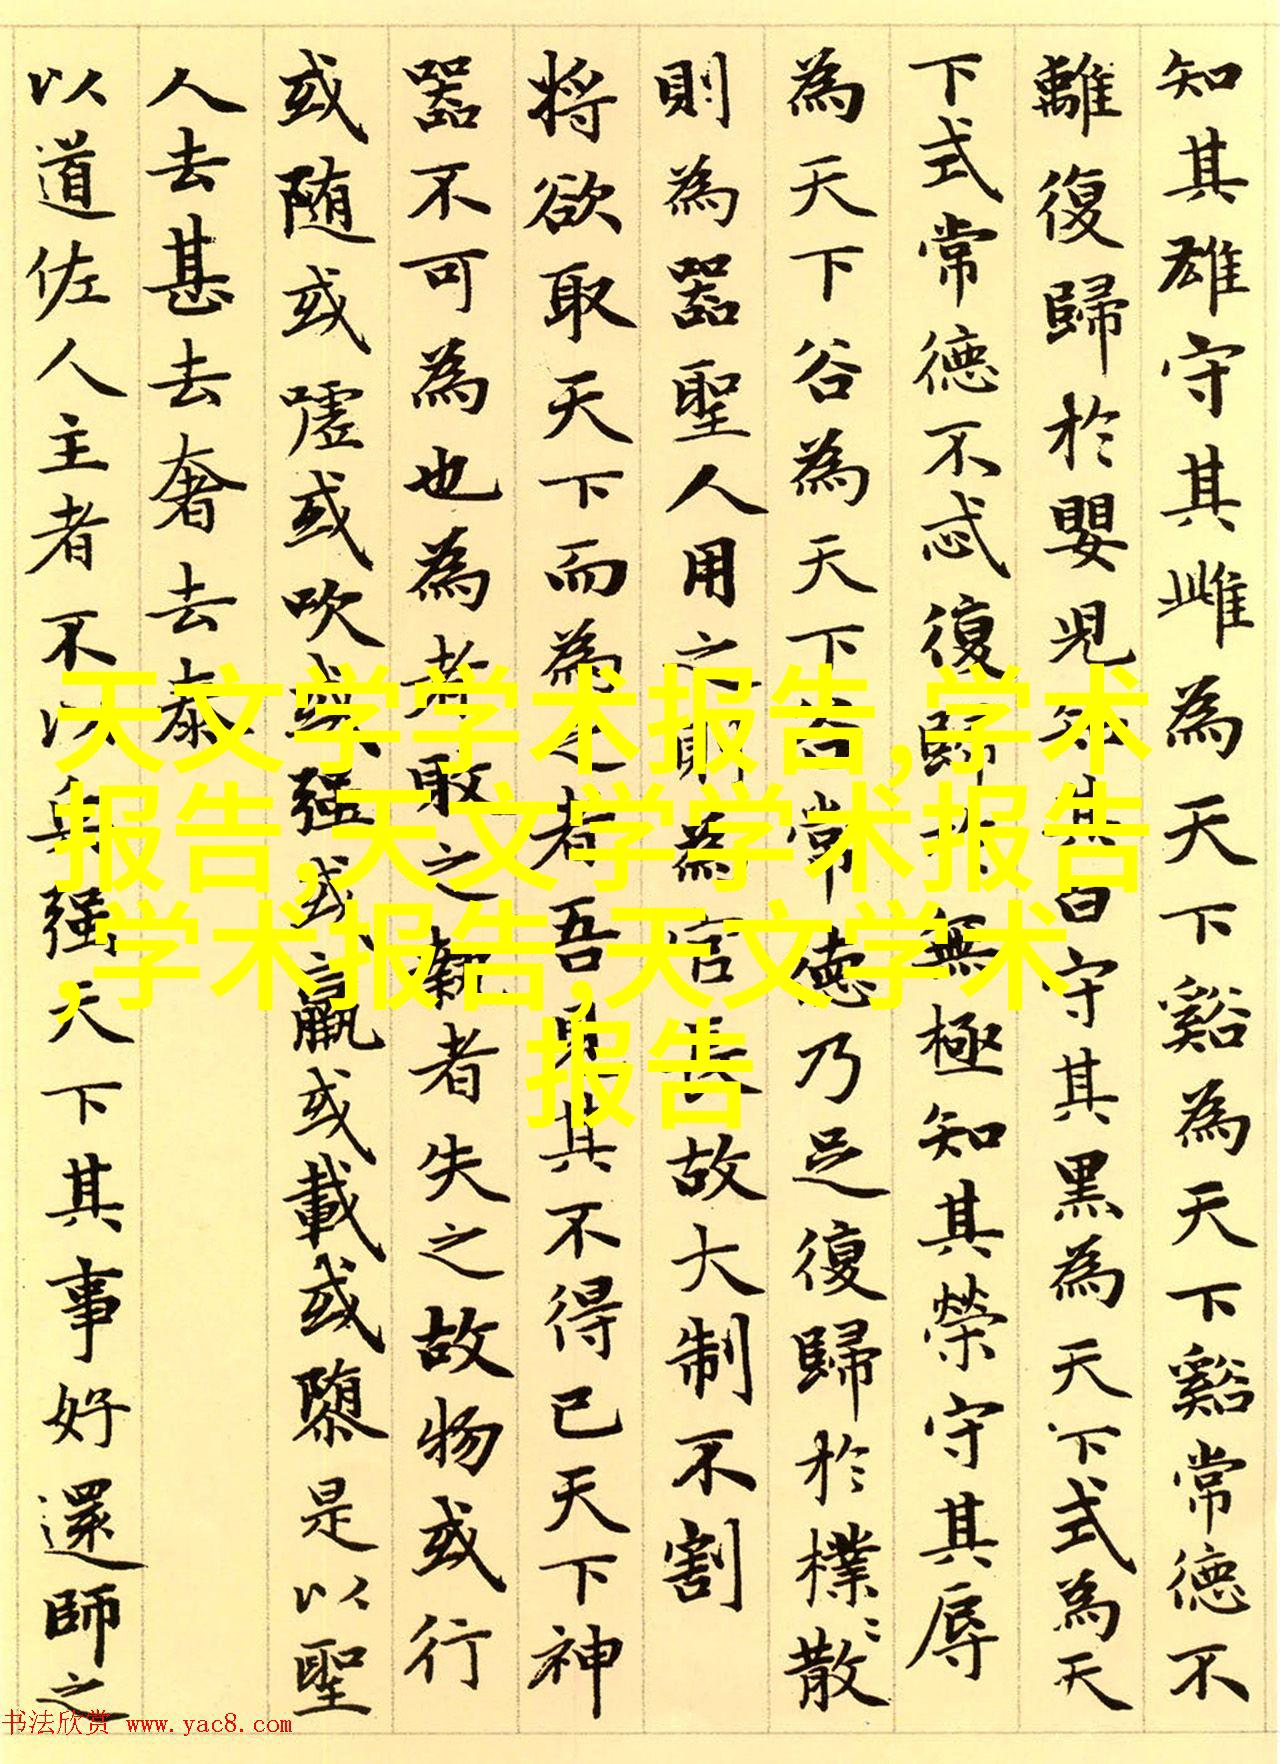 知其雄守其雌為天下谿為天下谿常德不
離復歸於嬰児知其白守其黒為天下式為天
下式常德不忒復歸於無極知其榮守其辱
為天下谷為天下谷常德乃足復歸於樸〻散
則為器聖人用之則為官長故大制不割
将欲取天下而為之者吾見其不得已天下神
器不可為也為者敗之執者失之故物或行
或随或嘘或吹或强或羸或載或隳是以聖
人去甚去奢去泰
以道佐人主者不以兵强天下其事好還師之
天文学学术报告,学术
报告,天文学学术报告
,学术报告,天文学术
报告
书法欣赏 www.yac8.com